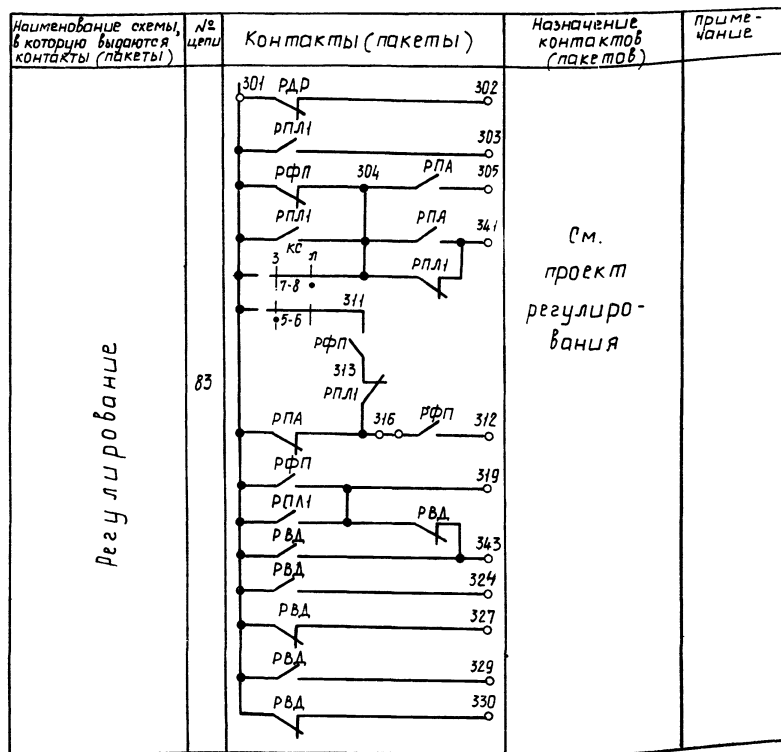 Наименование схемы,
в которую выдаются
контакты (пакеты)
№
цепи
Контакты (пакеты)
Назначение
контактов
(пакетов)
Приме-
чание
Регулирование
83
301 РДР 302
РПЛ1 303
РФП 304 РПА 305
РПЛ1 РПА 341
КС
З Л РПЛ1
7-8
311
5-6
РФП
313
РПЛ1
РПА 316 РФП 312
РФП 319
РПЛ1 РВД
РВД 343
РВД 324
РВД 327
РВД 329
РВД 330
См.
проект
регулиро-
вания